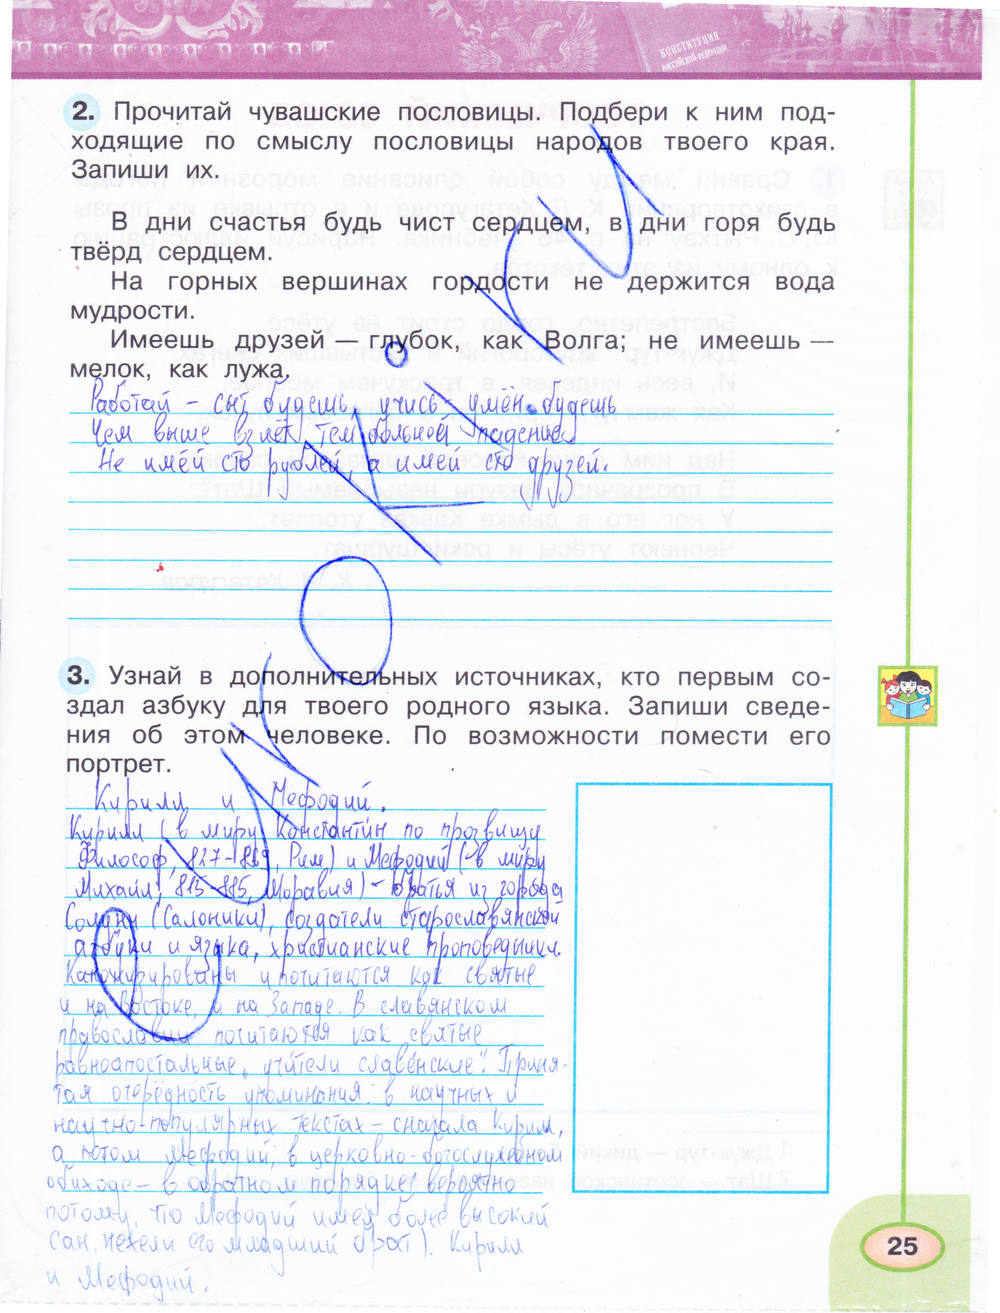 КОНСТИТУЦИЯ
РОССИЙСКОЙ ФЕДЕРАЦИИ
2. Прочитай чувашские пословицы. Подбери к ним под-
ходящие по смыслу пословицы народов твоего края.
Запиши их.
В дни счастья будь чист сердцем, в дни горя будь
твёрд сердцем.
На горных вершинах гордости не держится вода
мудрости.
Имеешь друзей — глубок, как Волга; не имеешь —
мелок, как лужа.
Работай – сыт будешь, учись – умён будешь
Чем выше взлёт, тем больней падение
Не имей сто рублей, а имей сто друзей.
3. Узнай в дополнительных источниках, кто первым со-
здал азбуку для твоего родного языка. Запиши сведе-
ния об этом человеке. По возможности помести его
портрет.
Кирилл и Мефодий.
Кирилл (в миру Константин по прозвищу
Философ, 827-869, Рим) и Мефодий (в миру
Михаил; 815-885, Моравия) – братья из города
Солуни (Салоники), создатели старославянской
азбуки и языка, христианские проповедники.
Канонизированы и почитаются как святые
и на Востоке, и на Западе. В славянском
православии почитаются как святые
равноапостальные „учители славенские". Приня-
тая очерёдность упоминания: в научных и
научно-популярных текстах – сначала Кирилл,
а потом Мефодий; в церковно-богослужебном
обиходе – в обратном порядке (вероятно
потому, что Мефодий имел более высокий
сан, нежели его младший брат). Кирилл
и Мефодий.
25